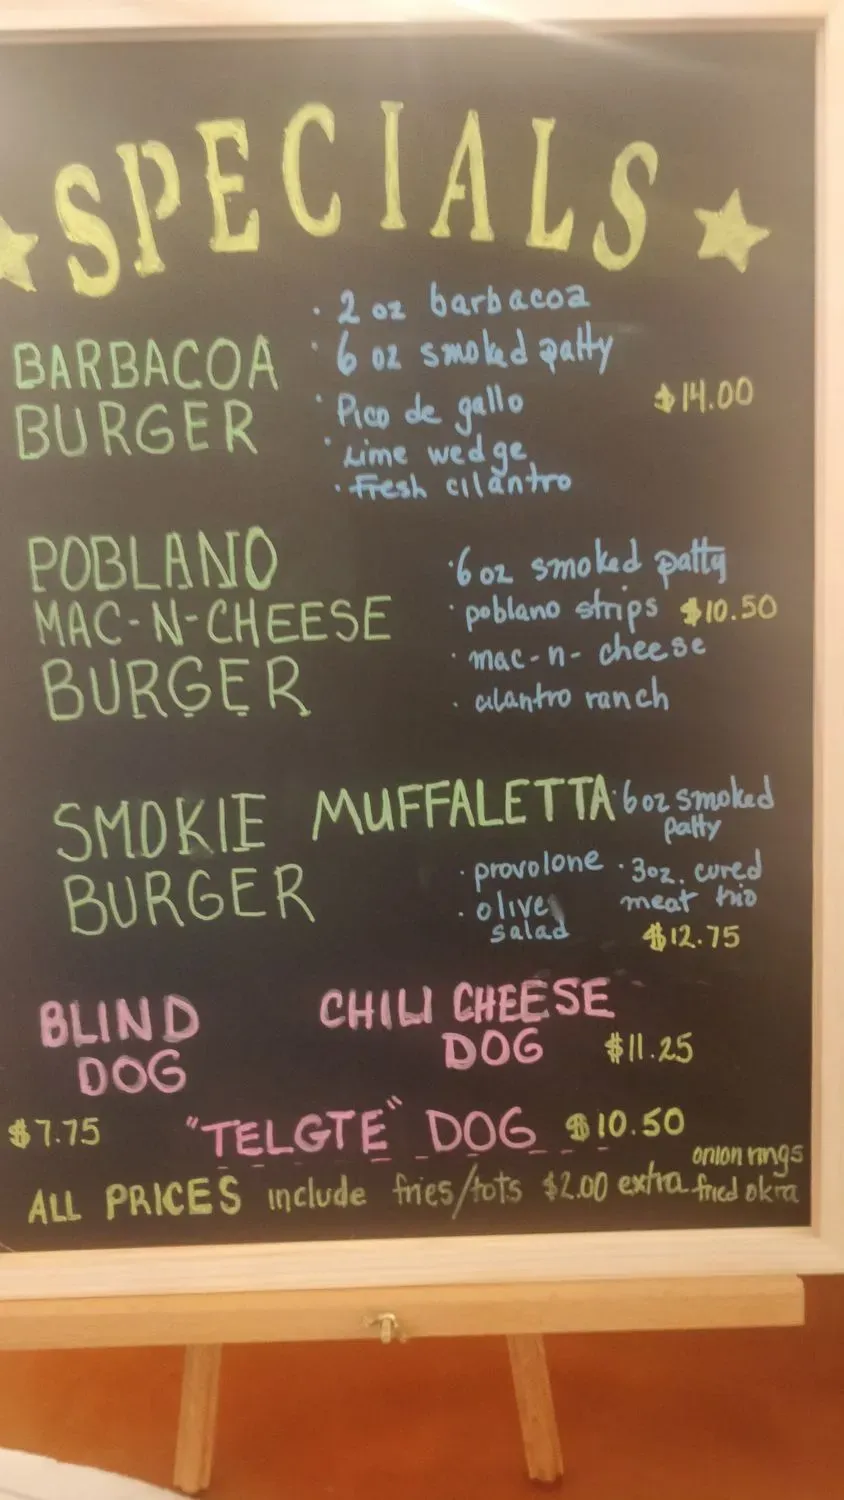 SPECIALS
BARBACOA
BURGER
· 2 oz barbacoa
· 6 oz smoked patty
· Pico de gallo
· Lime wedge
· Fresh cilantro
$14.00
POBLANO
MAC-N-CHEESE
BURGER
· 6 oz smoked patty
· poblano strips $10.50
· mac-n-cheese
· cilantro ranch
SMOKIE MUFFALETTA
BURGER
· 6 oz smoked
patty
· provolone
· olive
salad
· 3oz. cured
meat trio
$12.75
BLIND
DOG
$7.75
CHILI CHEESE
DOG $11.25
"TELGTE" DOG $10.50
ALL PRICES include fries/tots $2.00 extra onion rings
fried okra